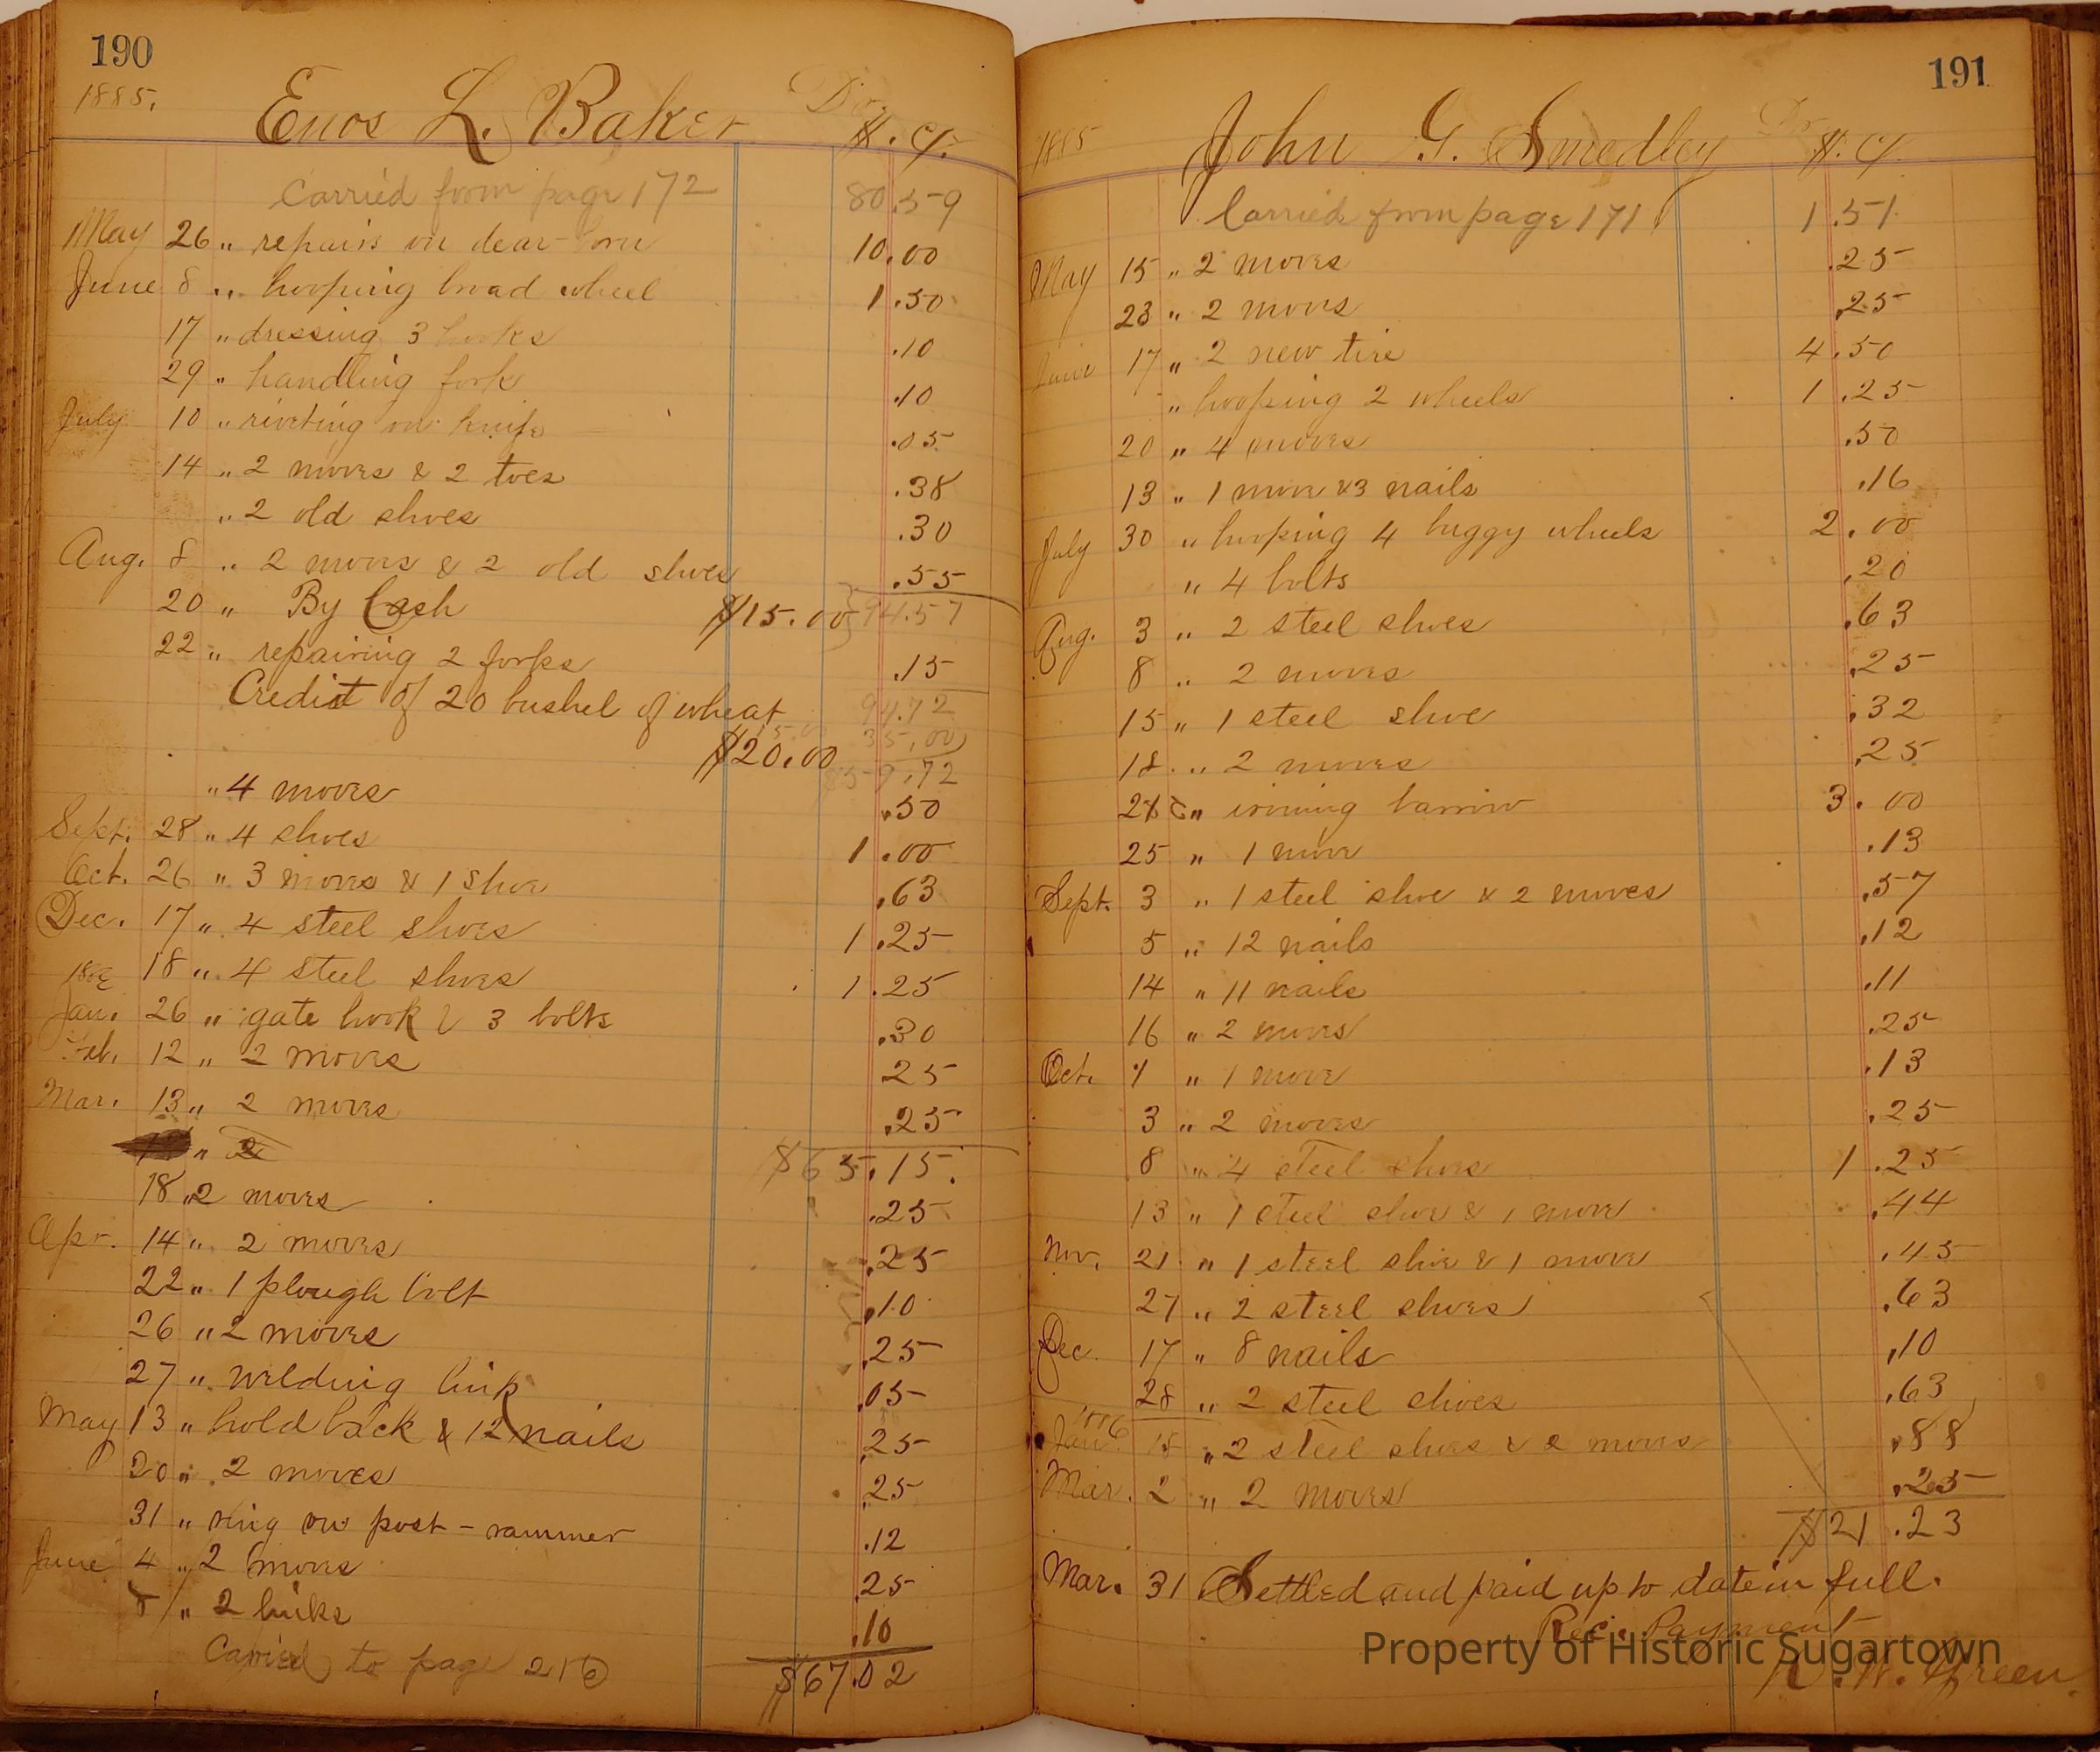 190
1885.
Enos L. Baker Dr.
$. c/.
Carried from page 172 80.59
May 26 " repairs on dear-born 10.00
June 8 " hooping broad wheel 1.50
17 " dressing 3 hooks .10
29 " handling fork .10
July 10 " riveting on knife .05
14 " 2 moves & 2 toes .38
" 2 old shoes .30
Aug. 8 " 2 moves & 2 old shoes .55
20 " By Cash $15.00 94.57
22 " repairing 2 forks .15
Credit of 20 bushel of wheat 94.72
15.00 35.00
$20.00 59.72
" 4 moves .50
Sept. 28 " 4 shoes 1.00
Oct. 26 " 3 moves & 1 shoe .63
Dec. 17 " 4 steel shoes 1.25
18 " 4 steel shoes 1.25
Jan. 26 " gate hook & 3 bolts .30
Feb. 12 " 2 moves 25
Mar. 13 " 2 moves .25
" 2
$65.15.
18 " 2 moves .25
Apr. 14 " 2 moves .25
22 " 1 plough bolt .10
26 " 2 moves .25
27 " welding link .05
May 13 " hold back & 12 nails 25
20 " 2 moves .25
31 " ring on post-rammer .12
June 4 " 2 moves .25
8 " 2 links .10
Carried to page 216 $67.02
191
1885
John G. Smedley Dr.
$. c/.
Carried from page 171 1.51
May 15 " 2 moves .25
23 " 2 moves .25
June 17 " 2 new tire 4.50
" hooping 2 wheels 1.25
20 " 4 moves .50
13 " 1 move & 3 nails .16
July 30 " hooping 4 buggy wheels 2.00
" 4 bolts .20
Aug. 3 " 2 steel shoes .63
8 " 2 moves .25
15 " 1 steel shoe .32
18 " 2 moves .25
" ironing barrow 3.00
25 " 1 move .13
Sept. 3 " 1 steel shoe & 2 moves .57
5 " 12 nails .12
14 " 11 nails .11
16 " 2 moves .25
Oct. 1 " 1 move .13
3 " 2 moves .25
8 " 4 steel shoes 1.25
13 " 1 steel shoe & 1 move .44
Nov. 21 " 1 steel shoe & 1 move .45
27 " 2 steel shoes .63
Dec. 17 " 8 nails .10
28 " 2 steel shoes .63
1886
Jan. 15 " 2 steel shoes & 2 moves .88
Mar. 2 " 2 moves .25
$21.23
Mar. 31 Settled and paid up to date in full.
Rec. Payment
W. Green.
Property of Historic Sugartown